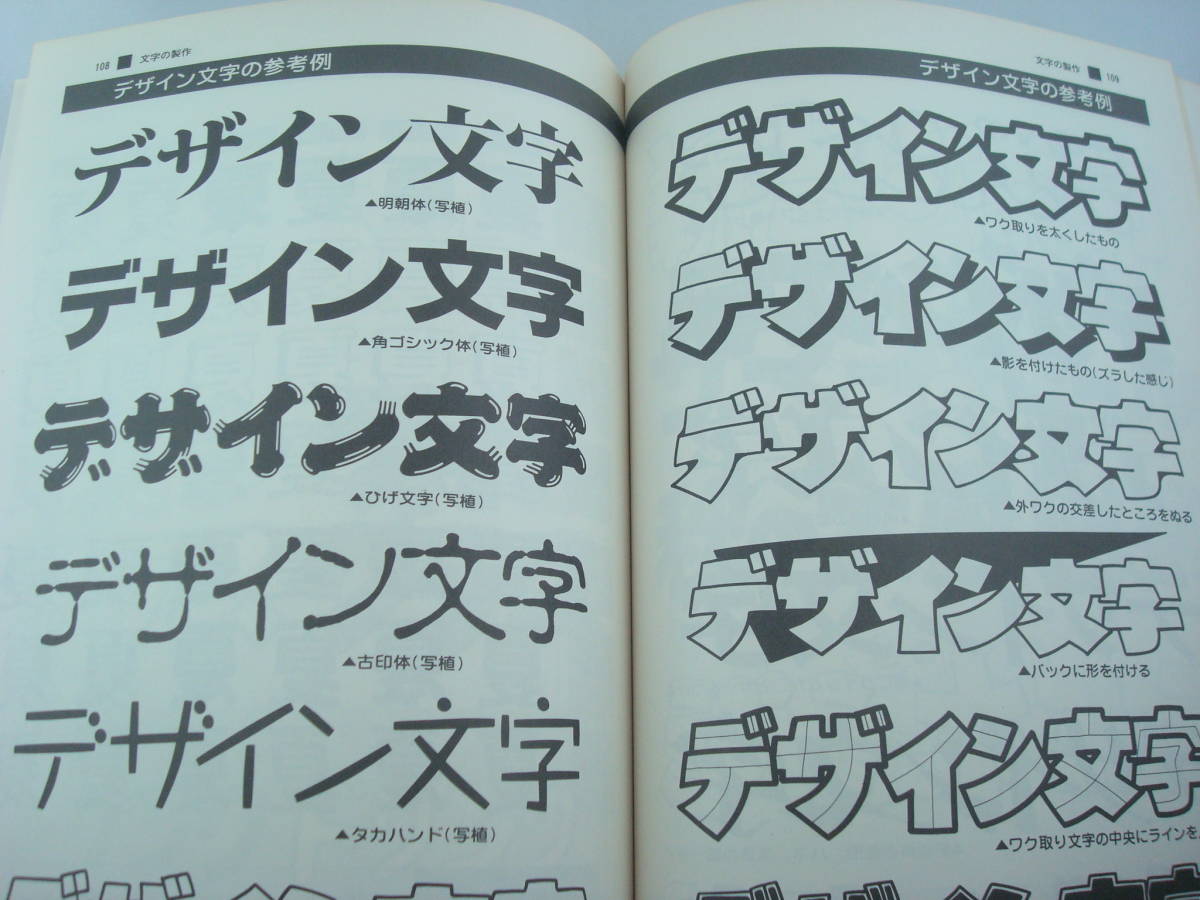 108 ■ 文字の製作
デザイン文字の参考例
デザイン文字
▲明朝体(写植)
デザイン文字
▲角ゴシック体(写植)
デザイン文字
▲ひげ文字(写植)
デザイン文字
▲古印体(写植)
デザイン文字
▲タカハンド(写植)
デザイン文字
文字の製作 ■ 109
デザイン文字の参考例
デザイン文字
▲ワク取りを太くしたもの
デザイン文字
▲影を付けたもの(ズラした感じ)
デザイン文字
▲外ワクの交差したところをぬる
デザイン文字
▲バックに形を付ける
デザイン文字
▲ワク取り文字の中央にラインを
デザイン文字